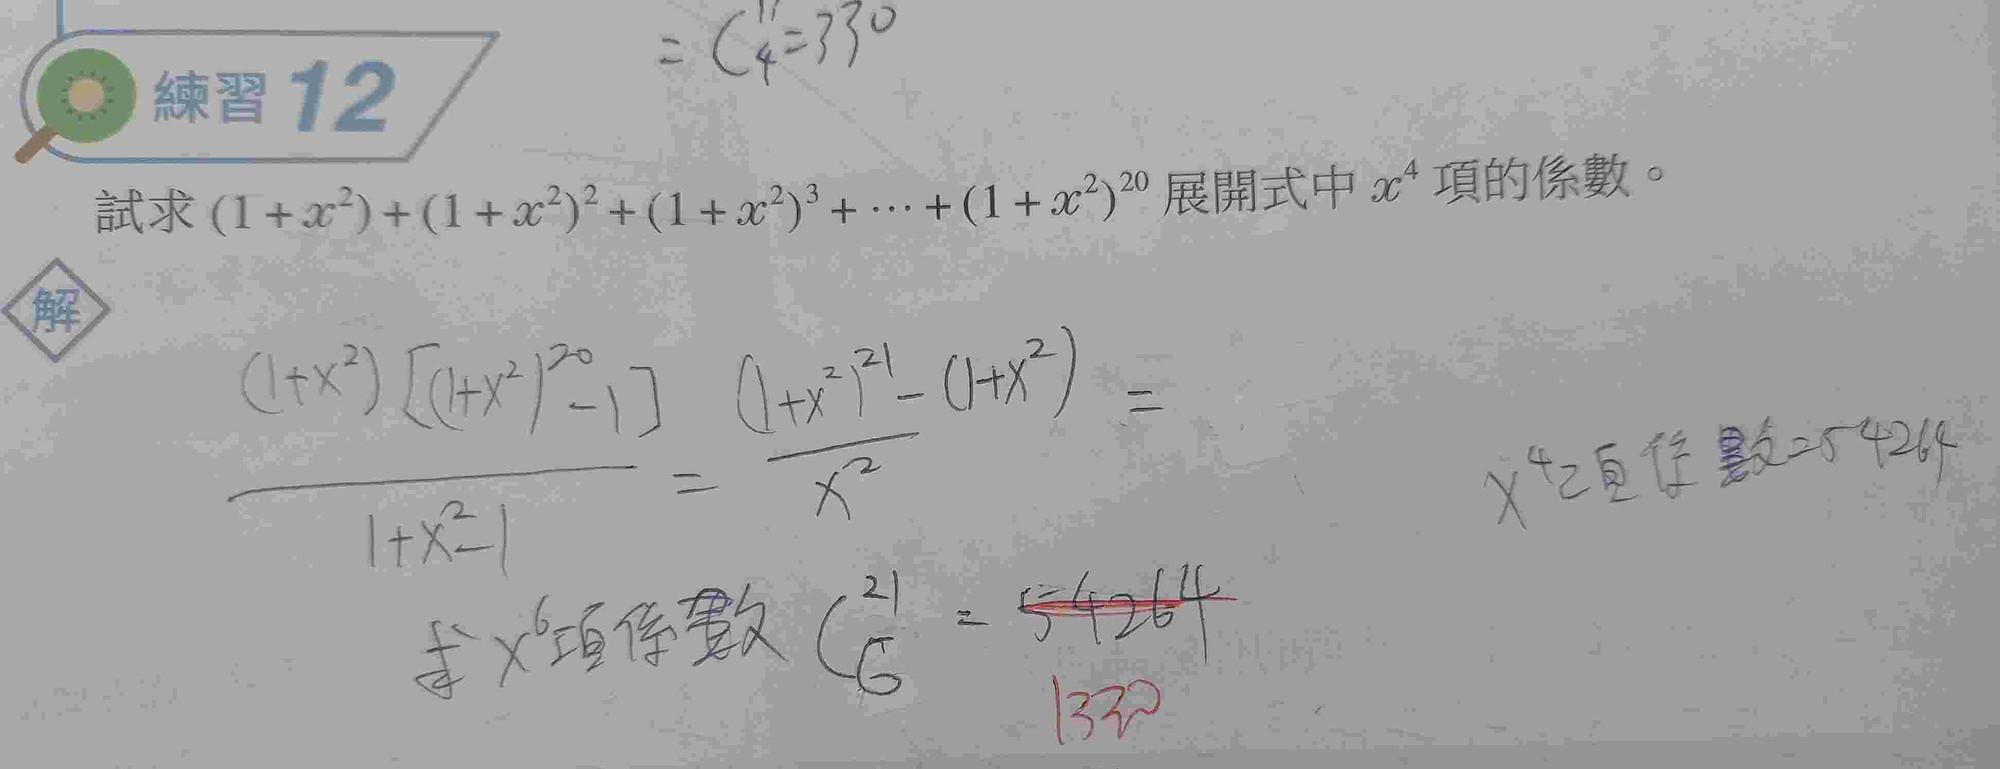 = C¹¹₄ = 330
練習 12
試求 (1 + x²) + (1 + x²)² + (1 + x²)³ + ⋯ + (1 + x²)²⁰ 展開式中 x⁴ 項的係數。
解
(1+x²)[(1+x²)²⁰-1] / 1+x²-1 = (1+x²)²¹-(1+x²) / x² =
x⁴項係數=54264
求x⁶項係數 C²¹₆ = 54264
1330